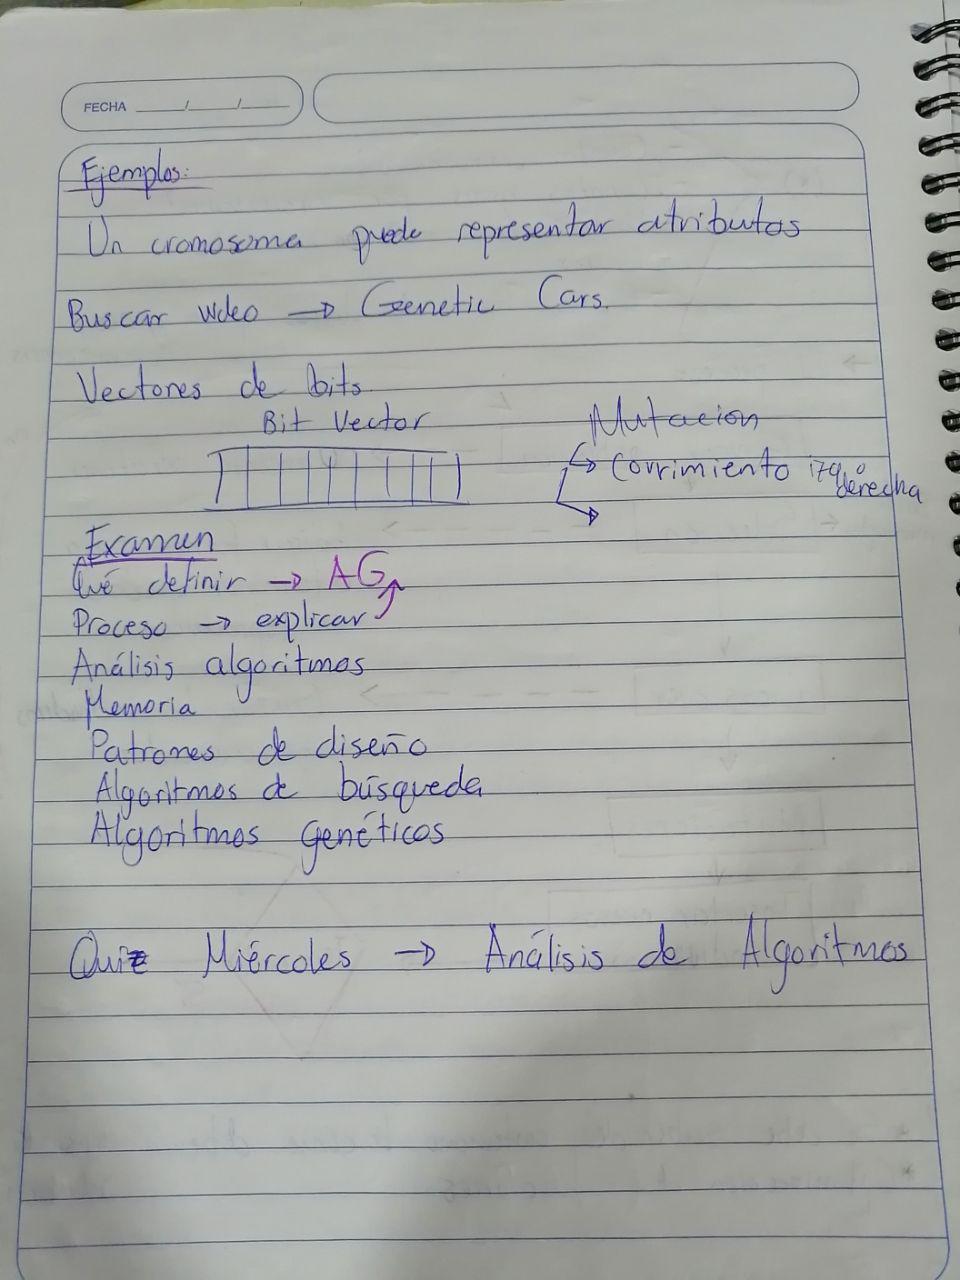 FECHA ____/____/____
Ejemplos:
Un cromosoma puede representar atributos
Buscar video → Genetic Cars.
Vectores de bits
Bit Vector
Mutacion
↳ Corrimiento izq o derecha
Examen
Qué definir → AG
Proceso → explicar
Análisis algoritmos
Memoria
Patrones de diseño
Algoritmos de búsqueda
Algoritmos genéticos
Quiz Miércoles → Análisis de Algoritmos